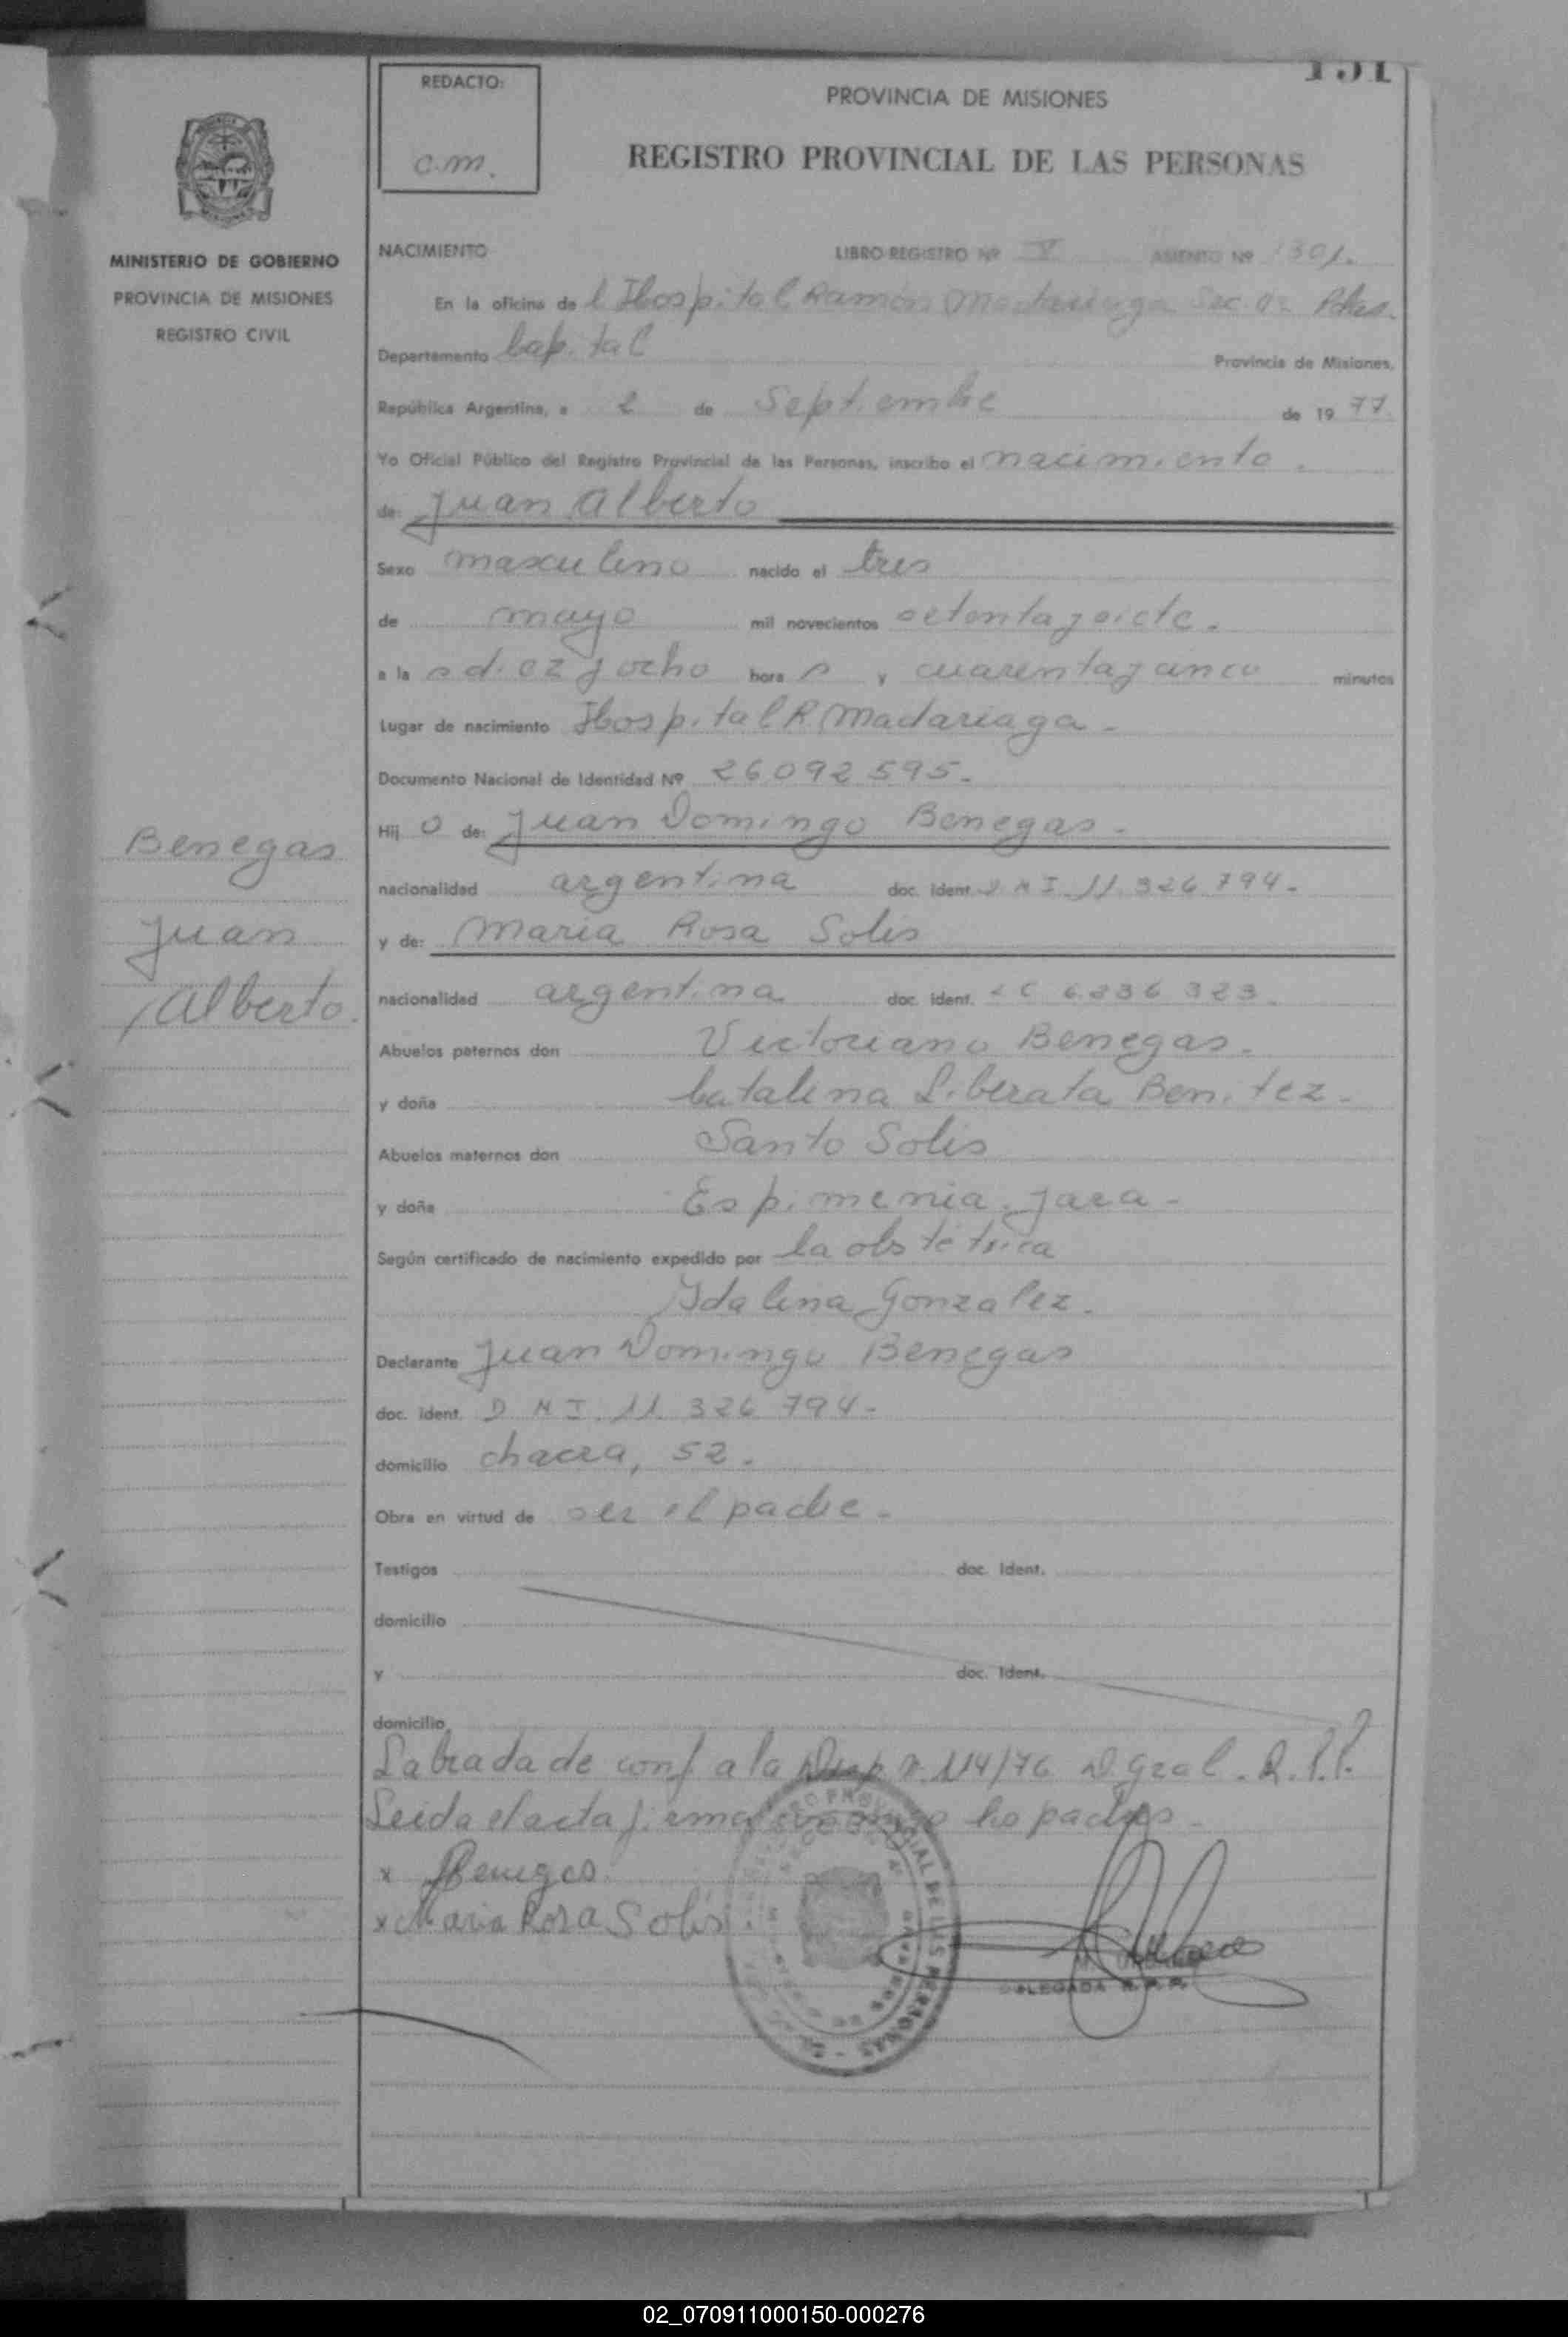 151
REDACTO:
c.m.
PROVINCIA DE MISIONES
REGISTRO PROVINCIAL DE LAS PERSONAS
MINISTERIO DE GOBIERNO
PROVINCIA DE MISIONES
REGISTRO CIVIL
NACIMIENTO LIBRO REGISTRO Nº V ASIENTO Nº 1301.
En la oficina de l Hospital Ramón Madariaga Sec. Pdas.
Departamento Capital Provincia de Misiones,
República Argentina, a 2 de Septiembre de 19 77.
Yo Oficial Público del Registro Provincial de las Personas, inscribo el nacimiento.
de: Juan Alberto
Sexo masculino nacido el tres
de mayo mil novecientos setenta y siete.
a la s diez y ocho hora s y cuarenta y cinco minutos
Lugar de nacimiento Hospital R. Madariaga -
Documento Nacional de Identidad Nº 26092595.
Hij o de: Juan Domingo Benegas -
nacionalidad argentina doc. ident. D N I. 11.326 794-
y de: Maria Rosa Solis
nacionalidad argentina doc. ident. L C 6.836 323.
Abuelos paternos don Victoriano Benegas.
y doña Catalina Liberata Benitez-
Abuelos maternos don Santo Solis
y doña Espimenia Jara -
Según certificado de nacimiento expedido por la obstétrica
Idalina Gonzalez.
Declarante Juan Domingo Benegas
doc. ident. D N I. 11. 326 794-
domicilio chacra, 52.
Obra en virtud de ser el padre.
Testigos doc. ident.
domicilio
y doc. ident.
domicilio
Labrada de conf a la Disp n. 114/76 D. Gral. R.P.P.
Leida el acta firma conmigo los padres.
x Benegas
x Maria Rosa Solís
DELEGADA R.P.P.
Benegas
Juan
Alberto.
02_070911000150-000276